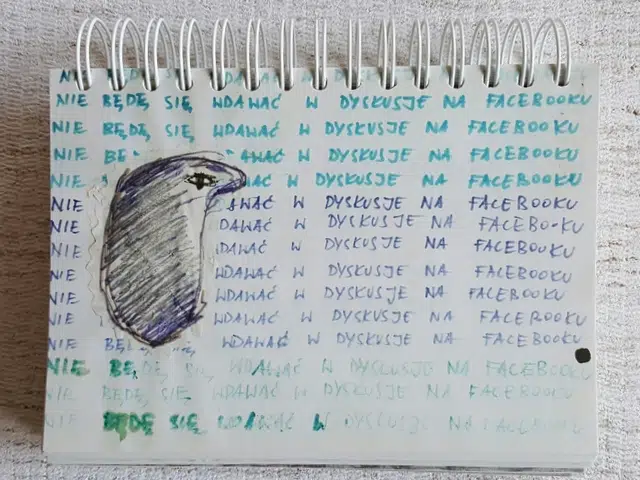 NIE BĘDĘ SIĘ WDAWAĆ W DYSKUSJE NA FACEBOOKU
NIE BĘDĘ SIĘ WDAWAĆ W DYSKUSJE NA FACEBOOKU
NIE BĘDĘ SIĘ WDAWAĆ W DYSKUSJE NA FACEBOOKU
NIE W DYSKUSJE NA FACEBOOKU
NIE W DYSKUSJE NA FACEBOOKU
NIE AWAĆ W DYSKUSJE NA FACEBOOKU
NIE DAWAĆ W DYSKUSJE NA FACEBOOKU
NIE DAWAĆ W DYSKUSJE NA FACEBOOKU
NIE WDAWAĆ W DYSKUSJE NA FACEBOOKU
NIE WDAWAĆ W DYSKUSJE NA FACEBOOKU
NIE WDAWAĆ W DYSKUSJE NA FACEBOOKU
NIE WDAWAĆ W DYSKUSJE NA FACEBOOKU
NIE BĘDĘ SIĘ WDAWAĆ W DYSKUSJE NA FACEBOOKU
NIE BĘDĘ SIĘ WDAWAĆ W DYSKUSJE NA FACEBOOKU
BĘDĘ SIĘ WDAWAĆ W DYSKUSJE NA FACEBOOKU